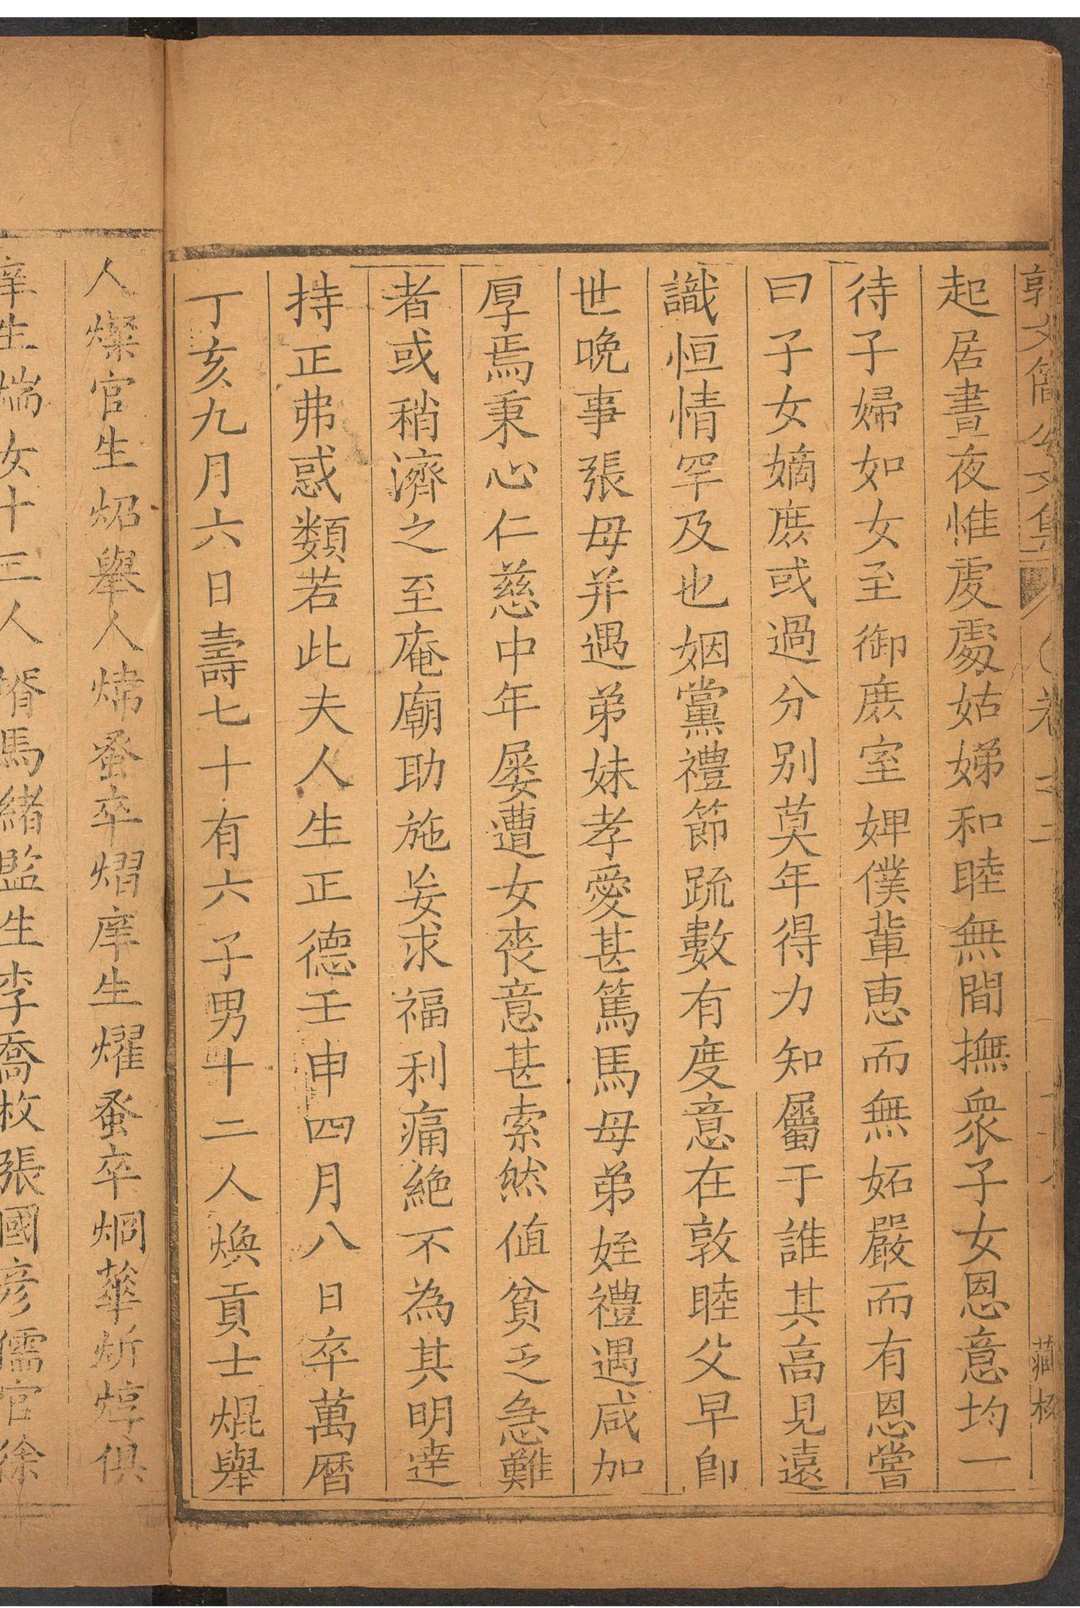 郭文簡公文集 卷之二 藏板
起居晝夜惟虔處姑娣和睦無間撫衆子女恩意均一
待子婦如女至御庶室婢僕輩惠而無妬嚴而有恩嘗
曰子女嫡庶或過分别莫年得力知屬于誰其高見遠
識恒情罕及也姻黨禮節疏數有度意在敦睦父早卽
世晚事張母并遇弟妹孝愛甚篤馬母弟姪禮遇咸加
厚焉秉心仁慈中年屢遭女喪意甚索然值貧乏急難
者或稍濟之至庵廟助施妄求福利痛絶不為其明達
持正弗惑類若此夫人生正德壬申四月八日卒萬曆
丁亥九月六日壽七十有六子男十二人煥貢士焜舉
人燦官生炤舉人煒蚤卒熠庠生燿蚤卒烱華炘焞俱
庠生煓女十三人婿馬緒監生李喬枚張國彥儒官徐